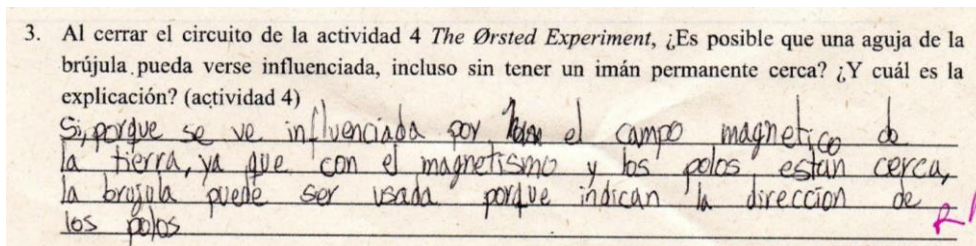 3. Al cerrar el circuito de la actividad 4 The Ørsted Experiment, ¿Es posible que una aguja de la
brújula pueda verse influenciada, incluso sin tener un imán permanente cerca? ¿Y cuál es la
explicación? (actividad 4)
Si, porque se ve influenciada por el campo magnetico de
la tierra, ya que con el magnetismo y los polos estan cerca,
la brojula puede ser usada porque indican la direccion de
los polos